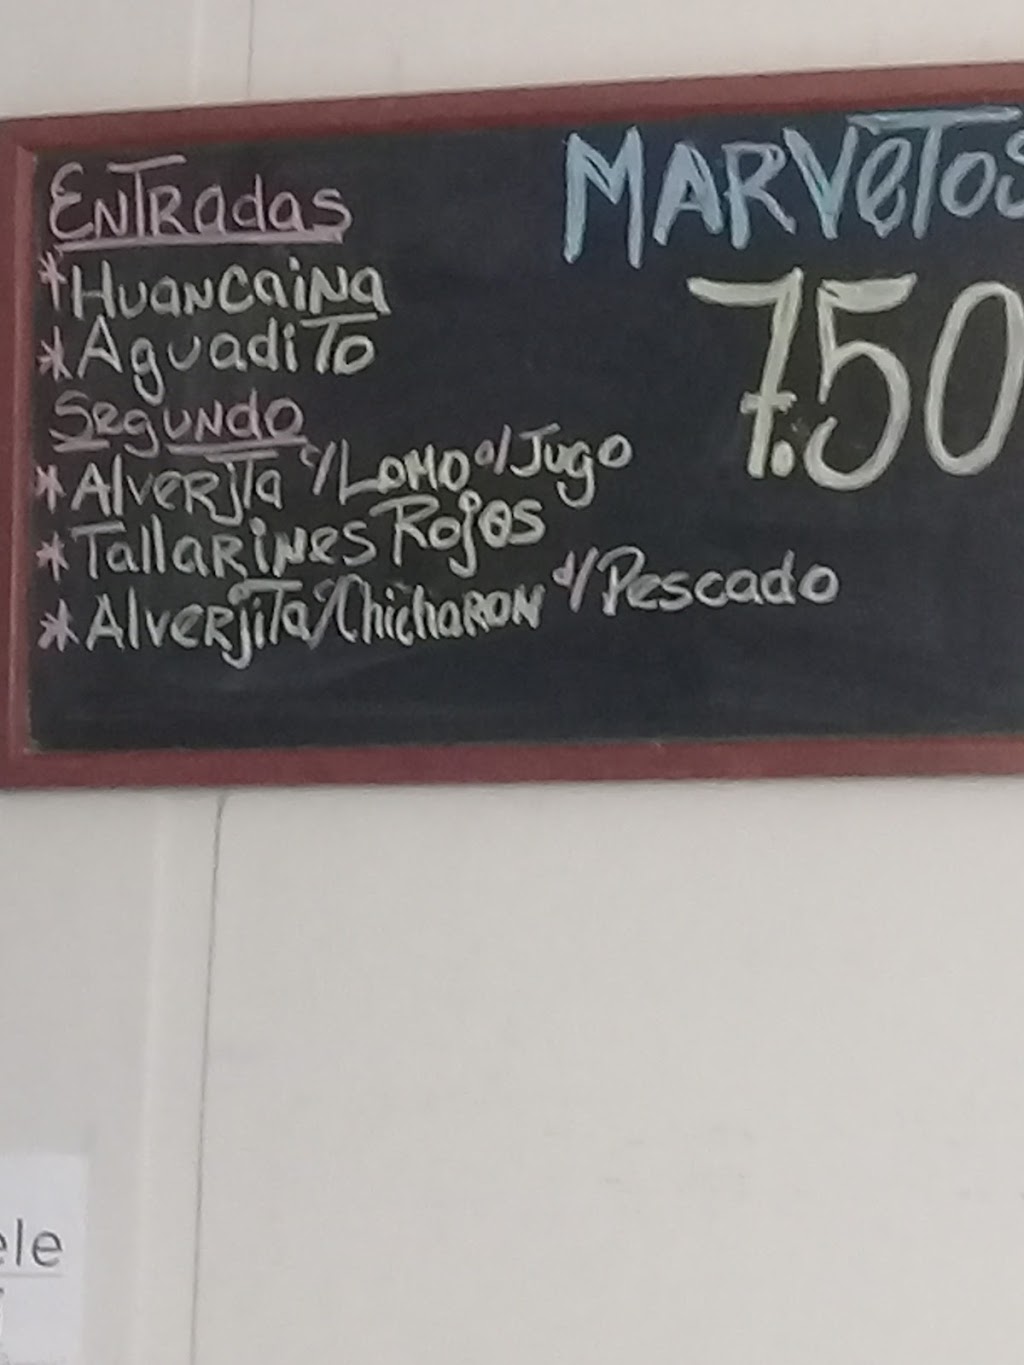 MARVeTOS
7.50
ENTRadas
*HUANCaiNa
*AguadiTo
SegUNdo
*AlveRjTa c/LOMO a/Jugo
*TallaRiNes Rojos
*AlveRjiTa c/ChichaRON d/Pescado
ele